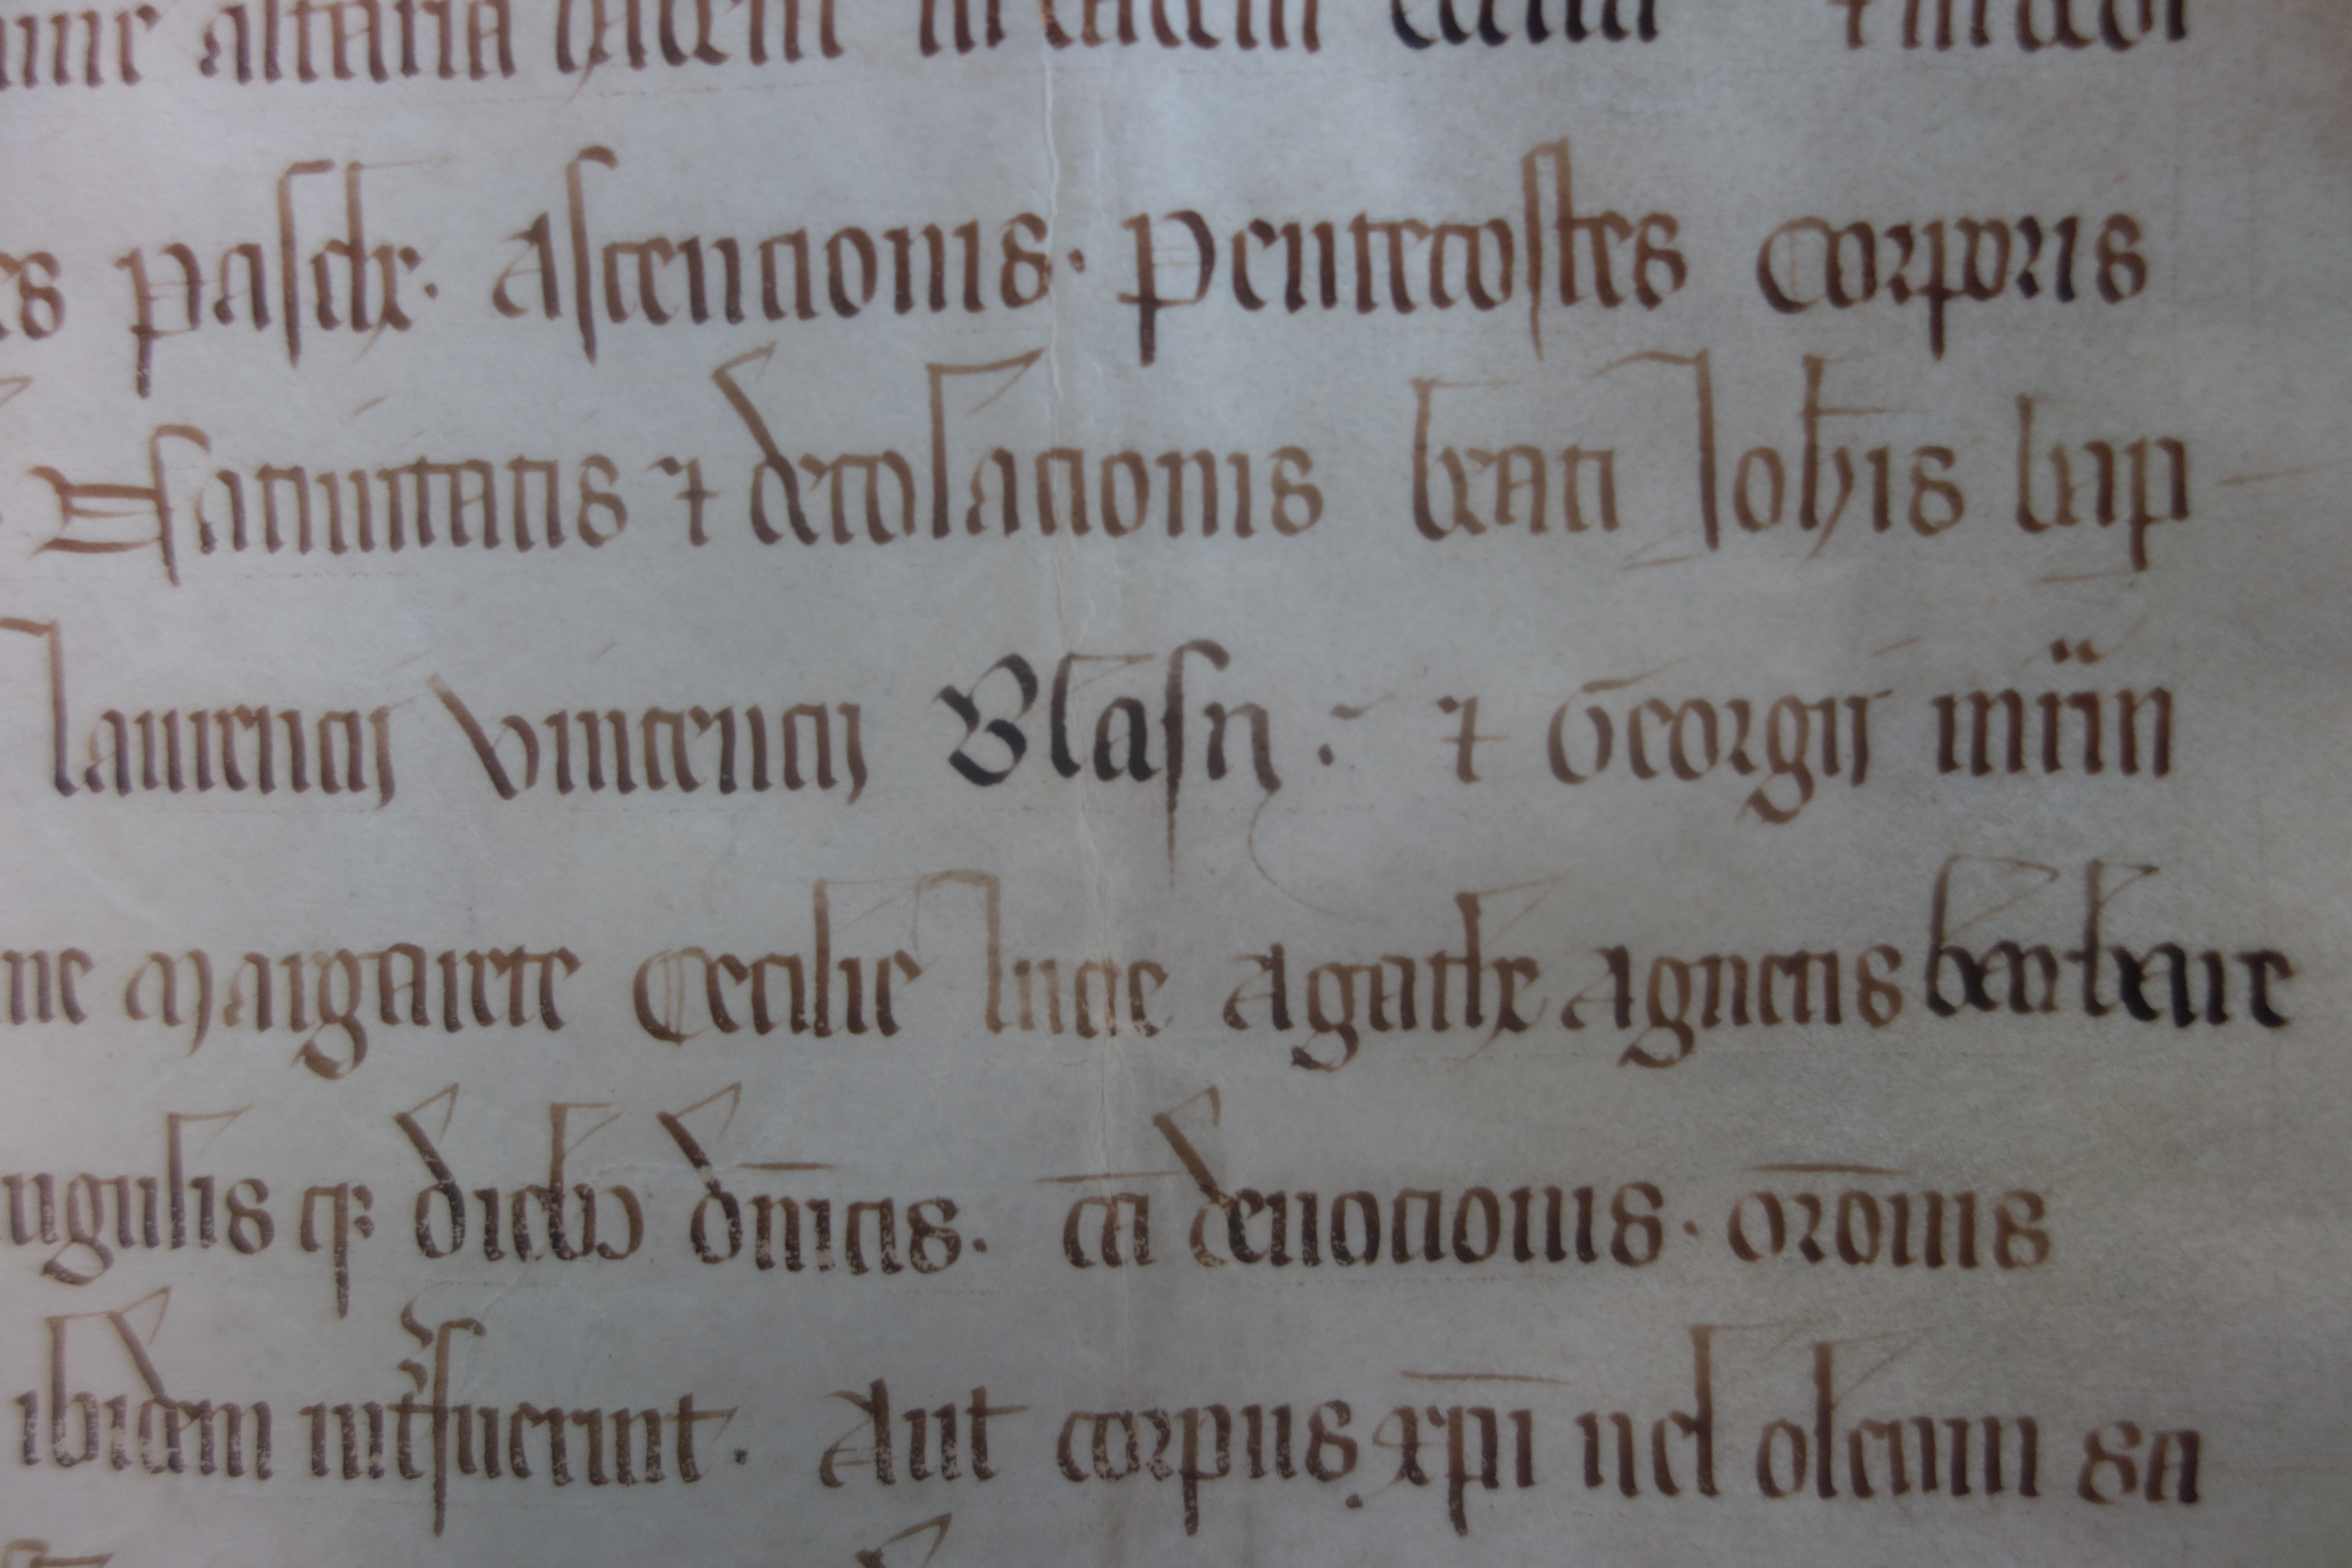 altaria habent in eadem eccliā ⁊ in dedi
es pasche. Ascencionis. Penthecostes Corporis
Natiuitatis ⁊ decolacionis beati Iohis bap
laurencij vincencij Blasij : ⁊ Georgij
ne Margarete Cecilie lucie Agathe Agnetis barbare
ngulis qȝ diebȝ dnicis. cā deuocionis. orōnis
ibidem int̄fuerint. Aut corpus xp̄i uel oleum sa